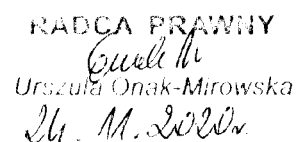 RADCA PRAWNY
Urszula Onak-Mirowska
24.11.2020r.